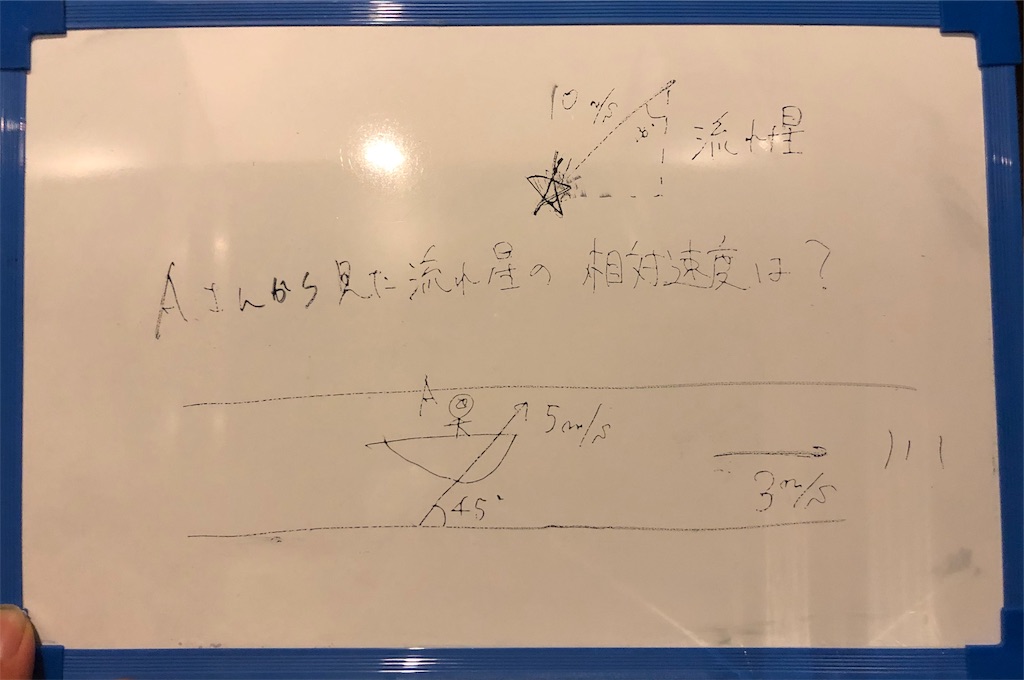 10 m/s
流れ星
Aさんから見た流れ星の相対速度は?
A
5m/s
45°
3m/s
川